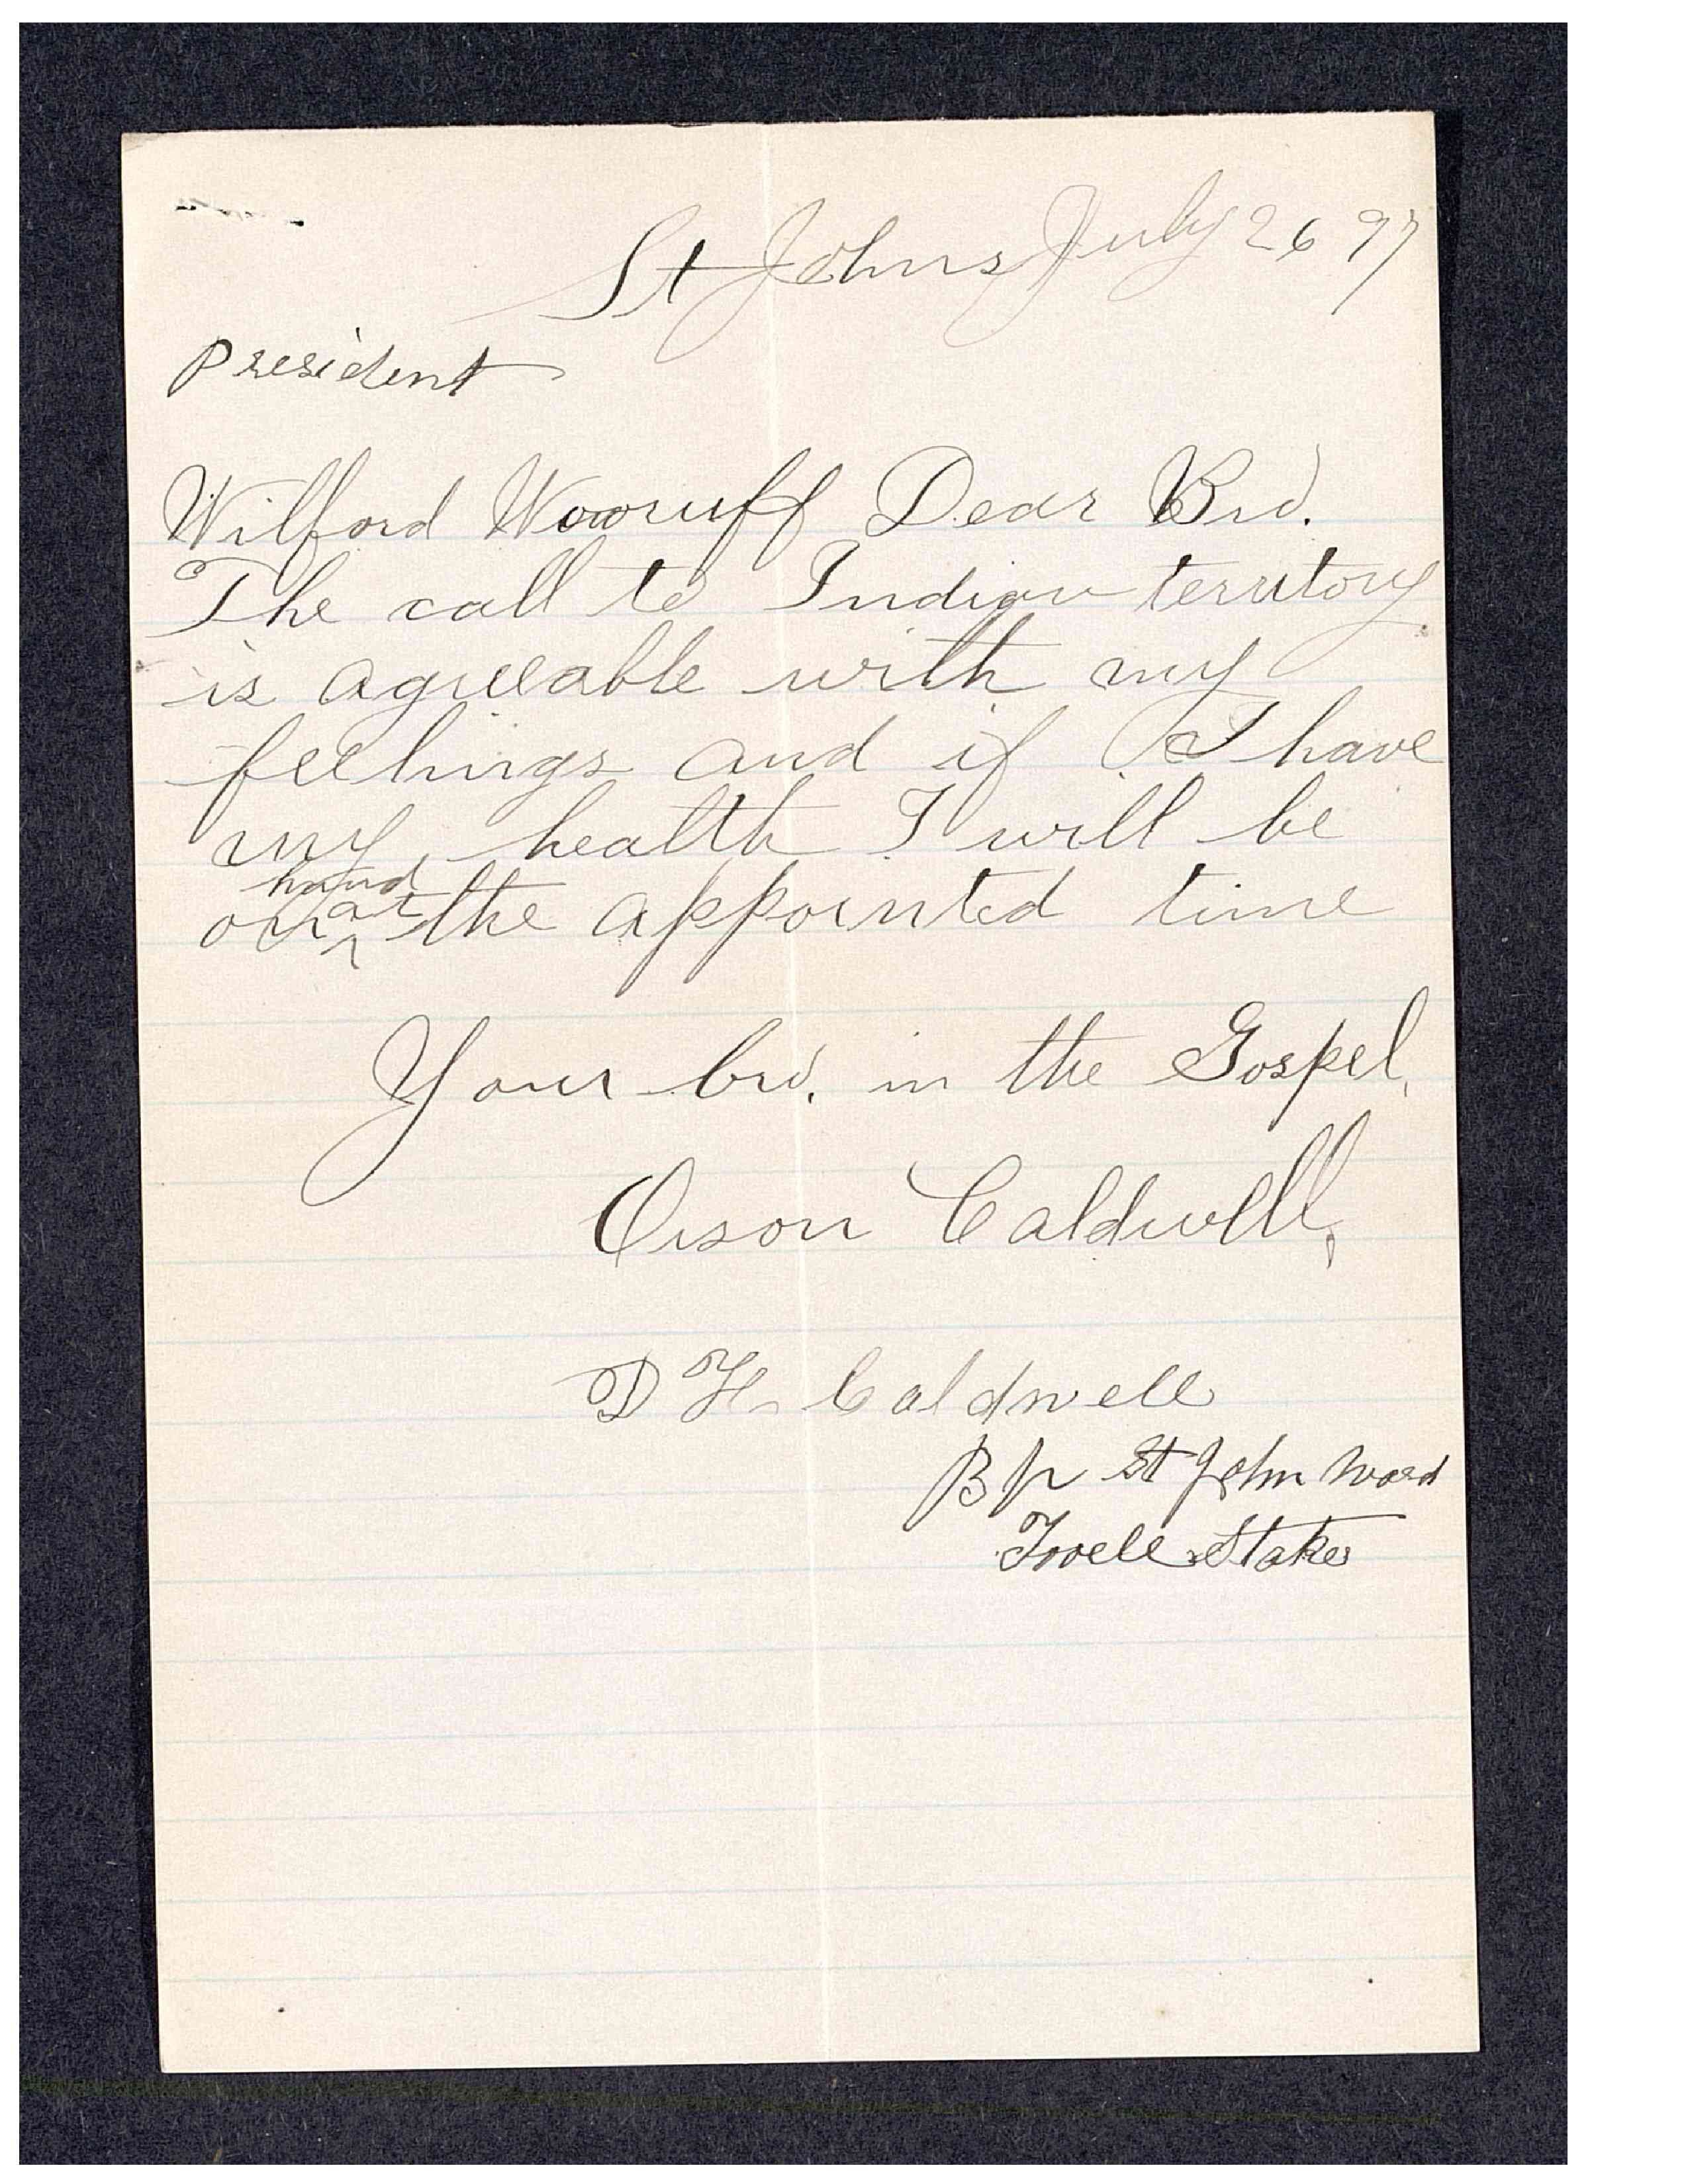 St Johns July 26 97
President
Wilford Wooruff Dear Bro.
The call to Indian territory
is agreeable with my
feelings and if I have
my health I will be
hand
on at the appointed time
Your bro. in the Gospel,
Orson Caldwell,
D H Caldwell
Bp St John Ward
Tooele Stake